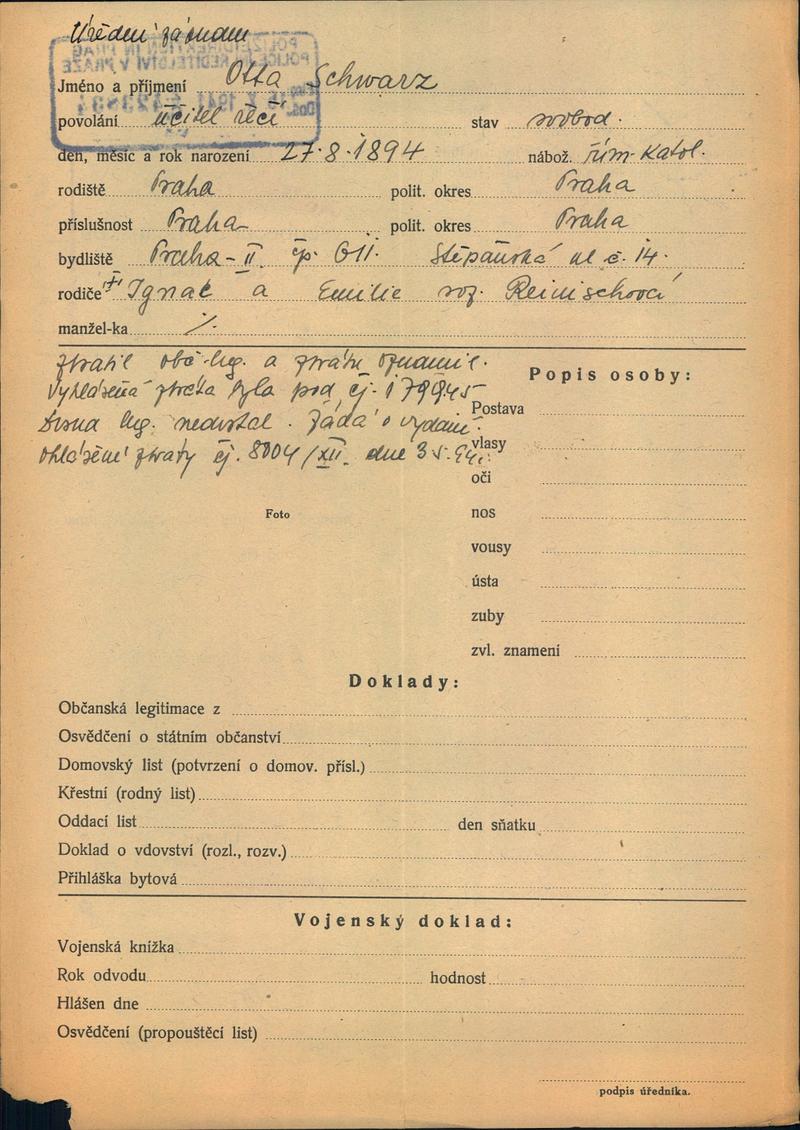 Úřední záznam
Jméno a příjmení Otta Schwarz
povolání učitel řečí stav svobod.
den, měsíc a rok narození 27.8.1894 nábož. řím. katol.
rodiště Praha polit. okres Praha
příslušnost Praha polit. okres Praha
bydliště Praha-II. čp. 611. Štěpánská ul č. 14.
rodiče Ignac a Emilie roz. Reinischová
manžel-ka
ztratil obč. leg. a ztrátu oznámil.
Popis osoby:
Vyhlášená ztráta byla pod čj.
Postava
leg. nedostal. Žádá o vydání
vlasy
ohlášení ztráty čj. 8004/XII. dne
oči
Foto
nos
vousy
ústa
zuby
zvl. znamení
Doklady:
Občanská legitimace z
Osvědčení o státním občanství
Domovský list (potvrzení o domov. přísl.)
Křestní (rodný list)
Oddací list den sňatku
Doklad o vdovství (rozl., rozv.)
Přihláška bytová
Vojenský doklad:
Vojenská knížka
Rok odvodu hodnost
Hlášen dne
Osvědčení (propouštěcí list)
podpis úředníka.